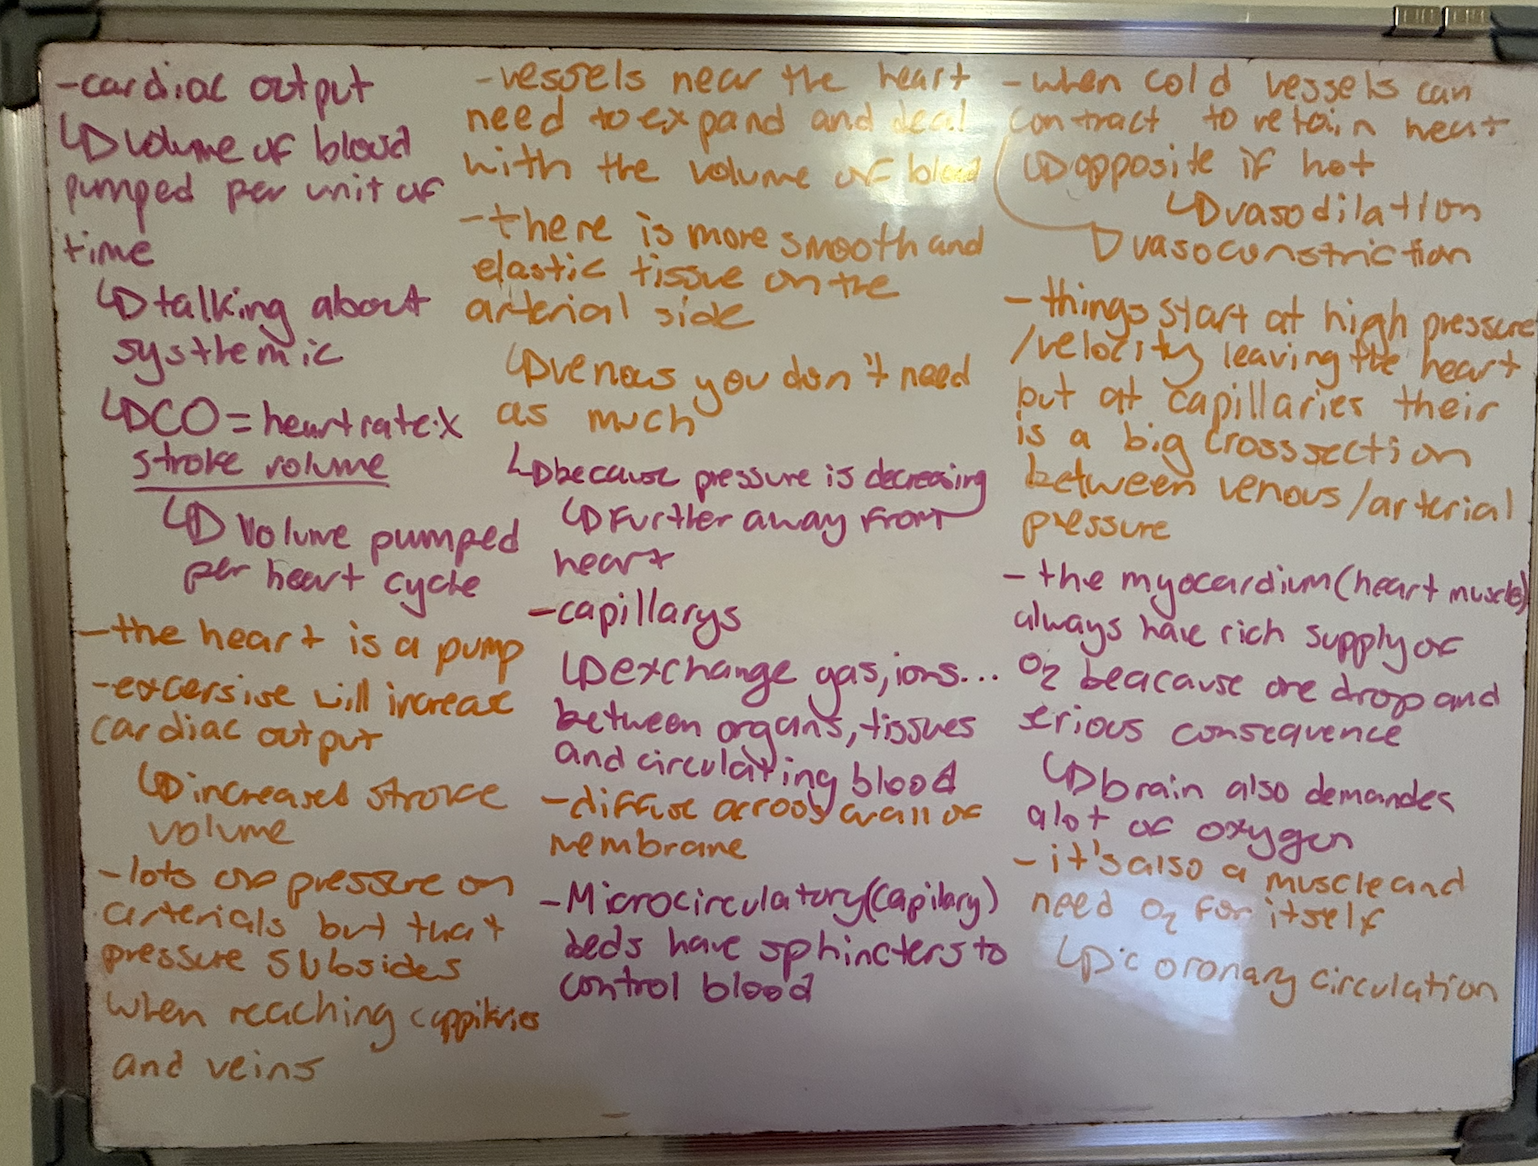 -cardiac output
↳volume of blood
pumped per unit of
time
↳talking about
systhemic
↳CO = heart rate x
stroke volume
↳ volume pumped
per heart cycle
-the heart is a pump
-excersise will increase
cardiac output
↳increased stroke
volume
-lots of pressure on
arterials but that
pressure subsides
when reaching cappilaries
and veins
-vessels near the heart
need to expand and deal
with the volume of blood
-there is more smooth and
elastic tissue on the
arterial side
↳venous you don't need
as much
↳because pressure is decreasing
↳further away from
heart
-capillarys
↳exchange gas, ions...
between organs, tissues
and circulating blood
-diffuse across wall of
membrane
-Microcirculatory (capilary)
beds have sphincters to
control blood
-when cold vessels can
contract to retain heat
↳opposite if hot
↳vasodilation
vasoconstriction
-things start at high pressure
/velocity leaving the heart
but at capillaries their
is a big cross section
between venous/arterial
pressure
-the myocardium (heart muscle)
always have rich supply of
O₂ beacause one drop and
serious consequence
↳brain also demandes
alot of oxygen
-it's also a muscle and
need O₂ for itself
↳coronary circulation